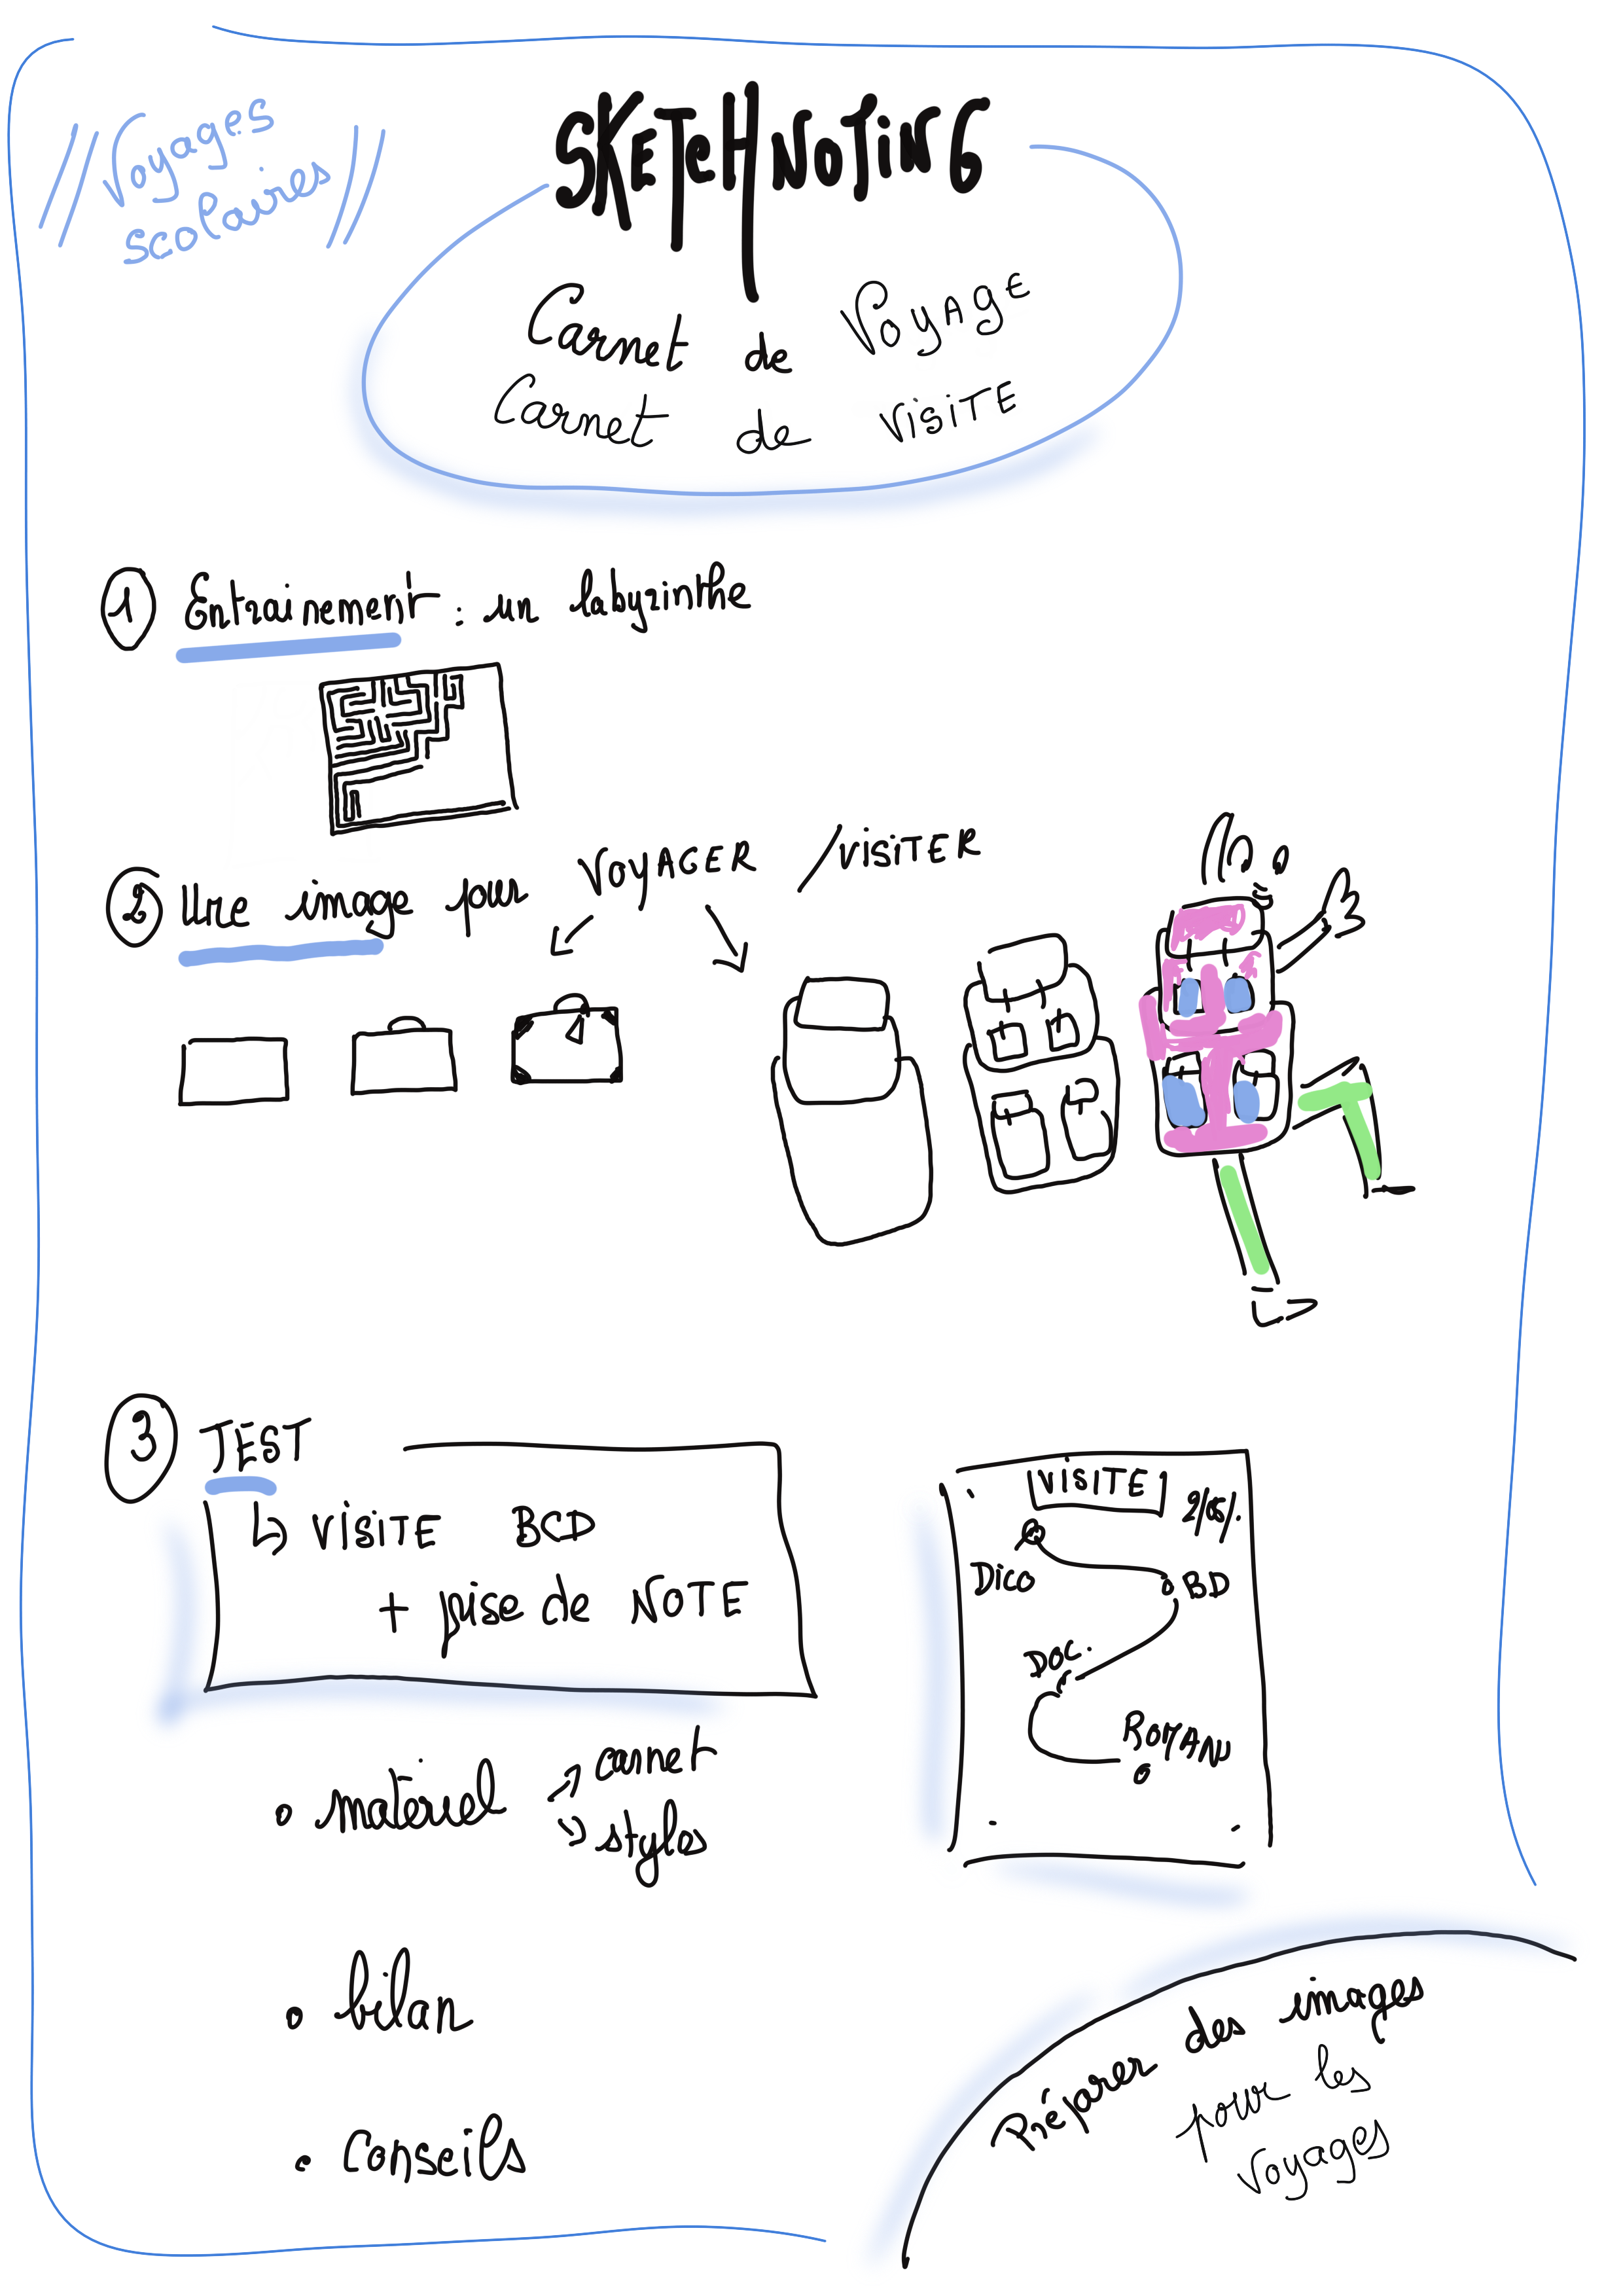 Voyages
scolaires
SKETCHNOTING
Carnet de VOYAGE
Carnet de VISITE
1 Entrainement : un labyrinthe
2 Une image pour VOYAGER / VISITER
3 TEST
↳ VISITE BCD
+ prise de NOTE
VISITE
2/05/.
Dico
BD
DOC.
ROMAN
• matériel → carnet
→ styles
• bilan
• conseils
Préparer des images
pour les
voyages